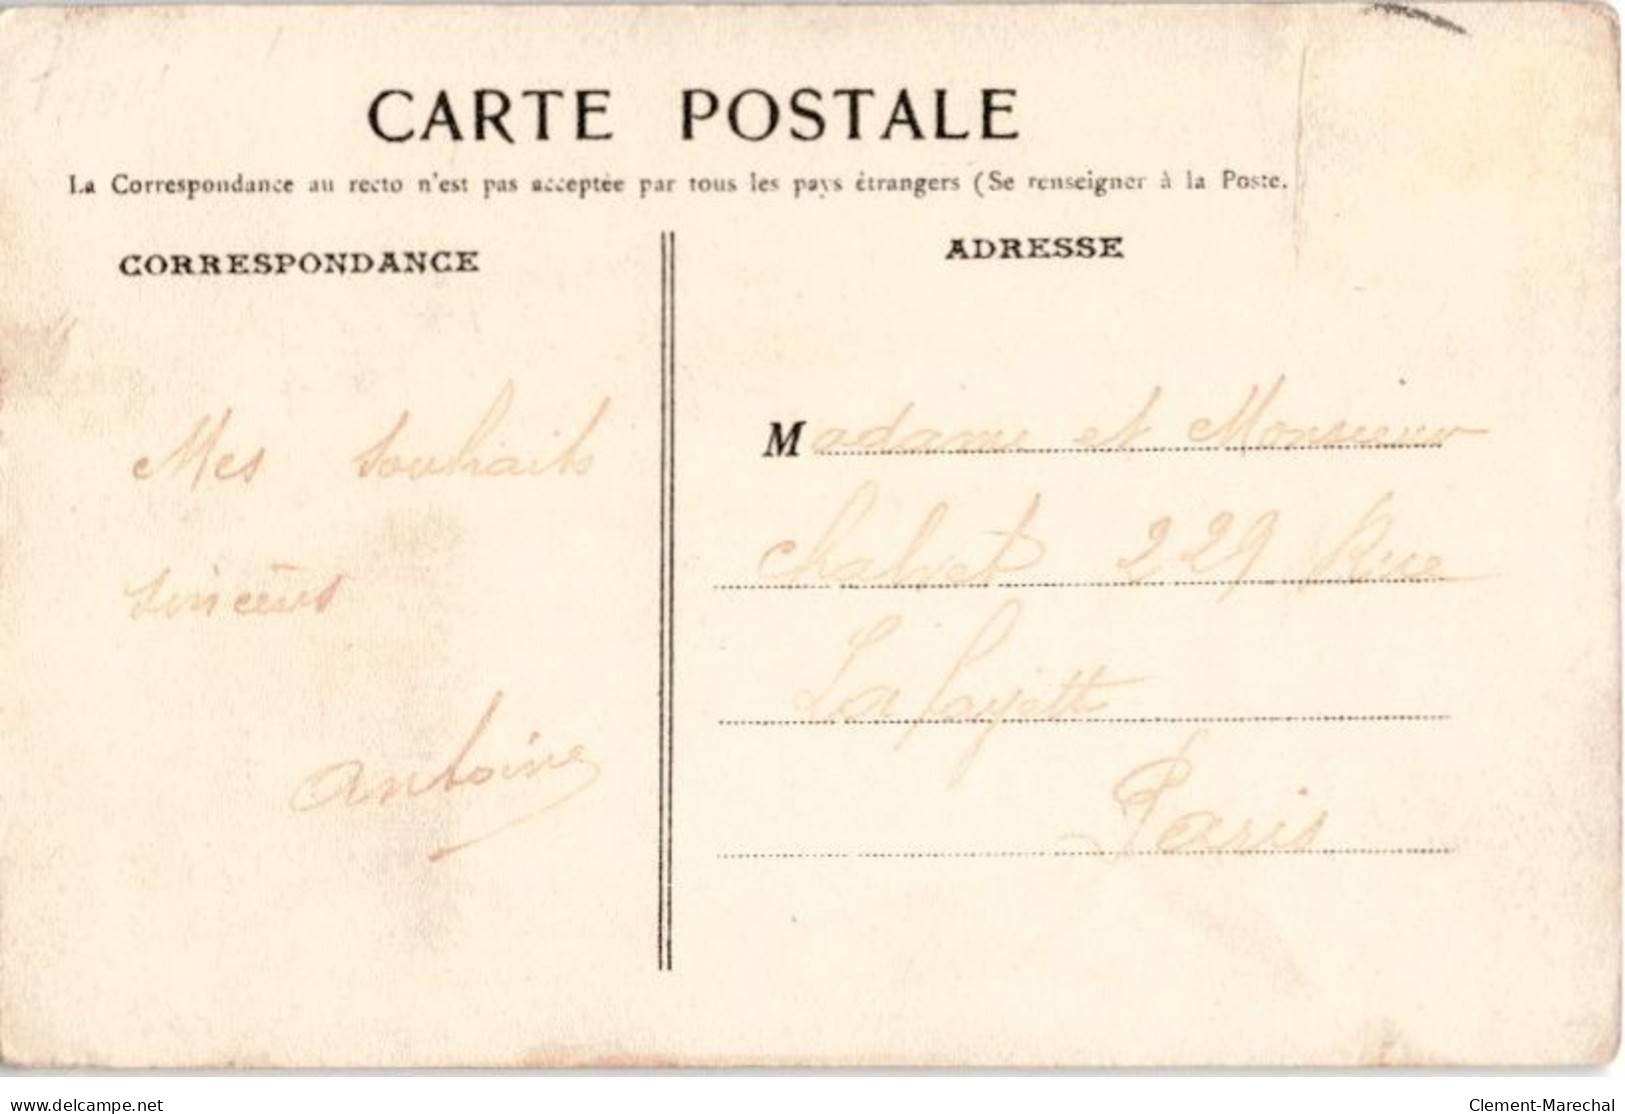 CARTE POSTALE
La Correspondance au recto n'est pas acceptée par tous les pays étrangers (Se renseigner à la Poste.
CORRESPONDANCE
ADRESSE
Mes souhaits
sincères
Antoine
Madame et Monsieur
Chalvet 229 Rue
La fayette
Paris
delcampe.net
Clement-Marechal